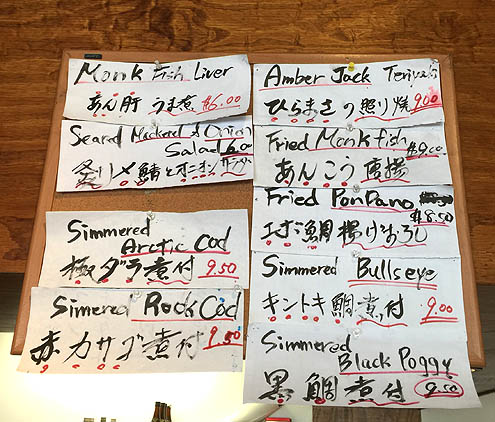 Monk Fish Liver
あん肝 うま煮 $6.00
Seared Mackerel & Onion
Salad 6.00
炙り〆鯖とオニオンサラダ
Simmered
Arctic Cod
極ダラ煮付 9.50
Simered Rock Cod
赤カサゴ煮付 9.50
Amber Jack Teriyaki
ひらまさの照り焼 9.00
Fried Monkfish
$9.00
あんこう唐揚
Fried PonPano
$8.50
まな鯛揚げおろし
Simmered Bullseye
キントキ鯛煮付 9.00
Simmered
Black Poggy
黒鯛煮付 9.00